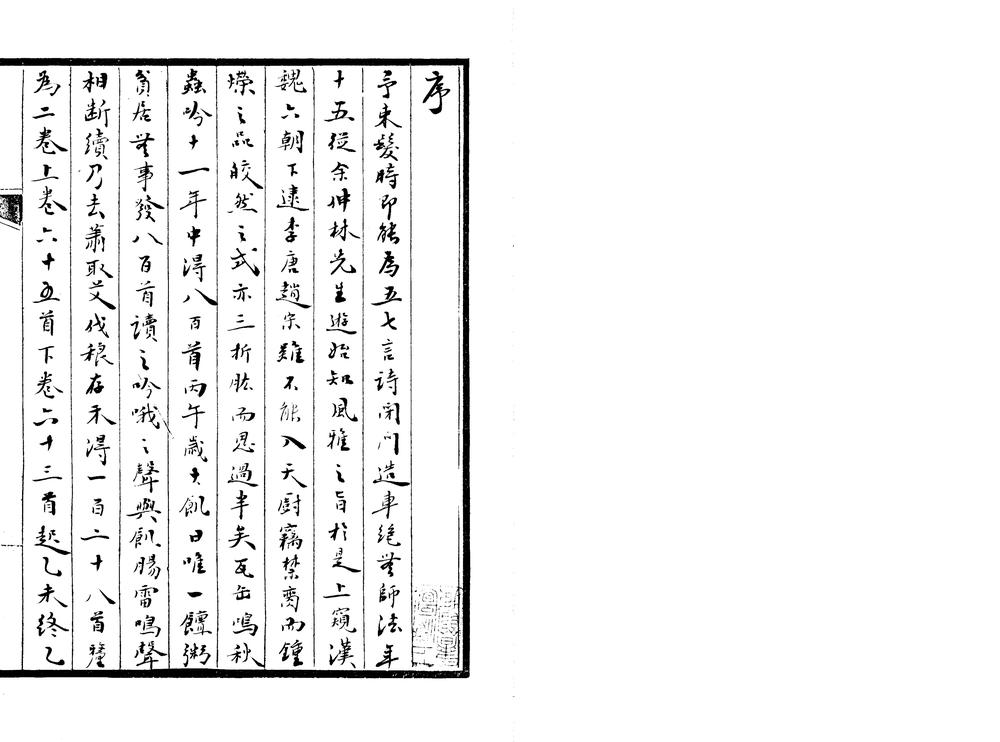 序
予束髮時即能為五七言詩閉門造車絕無師法年
十五從余仲林先生遊始知風雅之旨於是上窺漢
魏六朝下逮李唐趙宋雖不能入天廚竊禁臠而鍾
嶸之品皎然之式亦三折肱而思過半矣瓦缶鳴秋
蟲吟十一年中得八百首丙午歲大飢日唯一饘粥
貧居無事發八百首讀之吟哦之聲與飢腸雷鳴聲
相斷續乃去蕭取艾伐稂存禾得一百二十八首釐
為二卷上卷六十五首下卷六十三首起乙未終乙